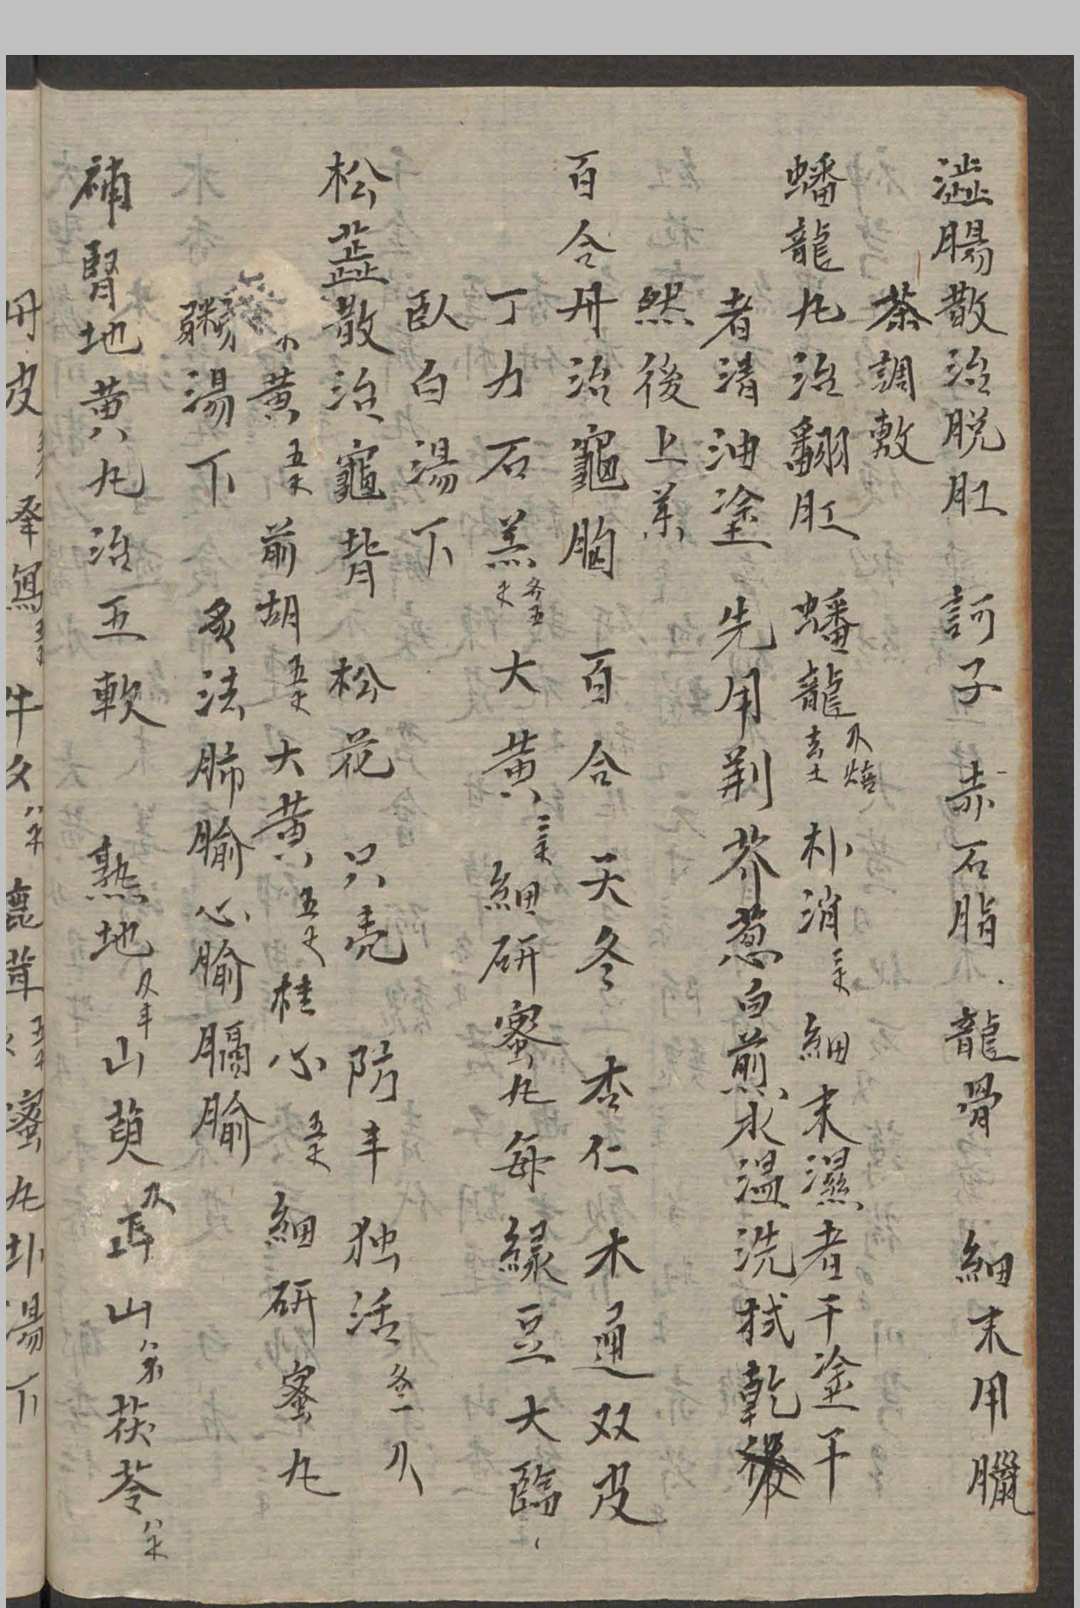 澁腸散治脱肛 訶子 赤石脂 龍骨 細末用臘
茶調敷
蟠龍丸治翻肛 蟠龍去土 朴消二戔 細末濕者干塗干
者清油塗 先用荆芥葱白煎水温洗拭乾
然後上薬
百合丹治龜胸 百合 天冬 杏仁 木通双皮
丁力 石羔 大黄三戔 細研蜜丸每緑豆大臨
臥白湯下
松蘂散治龜背 松花 只壳 防丰 独活各一
黄五戔 前胡五戔 大黄五戔 桂心五戔 細研蜜丸
粥湯下 炙法肺腧心腧膈腧
補腎地黄丸治五軟 熟地 山萸 山 茯苓
丹皮 牛夕 鹿茸 蜜丸 湯下